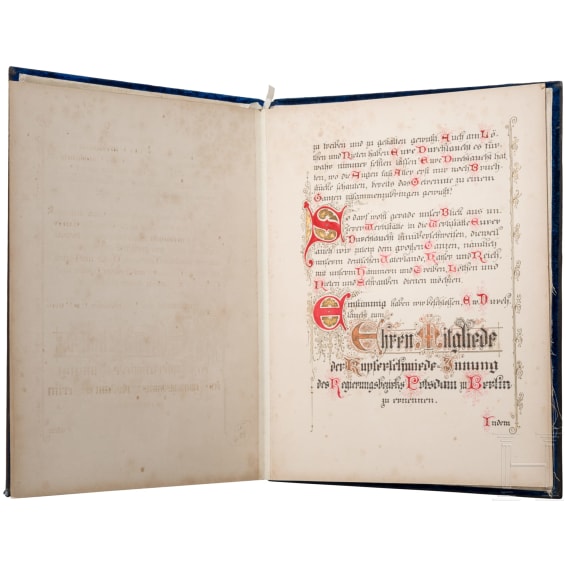 zu treiben und zu gestalten gewußt. Auch am Lö-
then und Nieten haben Eure Durchlaucht es für-
wahr nimmer fehlen lassen. Ew Durchlaucht hat-
ten, wo die Augen fast Aller erst nur noch Bruch-
stücke schauten, bereits das Getrennte zu einem
Ganzen zusammenzubringen gewußt!
So darf wohl gerade unser Blick aus un-
serer Werkstätte in die Werkstätte Eurer
Durchlaucht hinüberschweifen, dieweil
auch wir zum dem großen Ganzen, nämlich
unserm deutschen Vaterlande, Kaiser und Reich,
mit unserm Hämmern und Treiben, Löthen und
Nieten und Schrauben dienen möchten.
Einmüthig haben wir beschlossen, Ew Durch-
laucht zum
Ehren Mitgliede
der Kupferschmiede-Innung
des Regierungsbezirks Potsdam zu Berlin
zu ernennen.
Indem